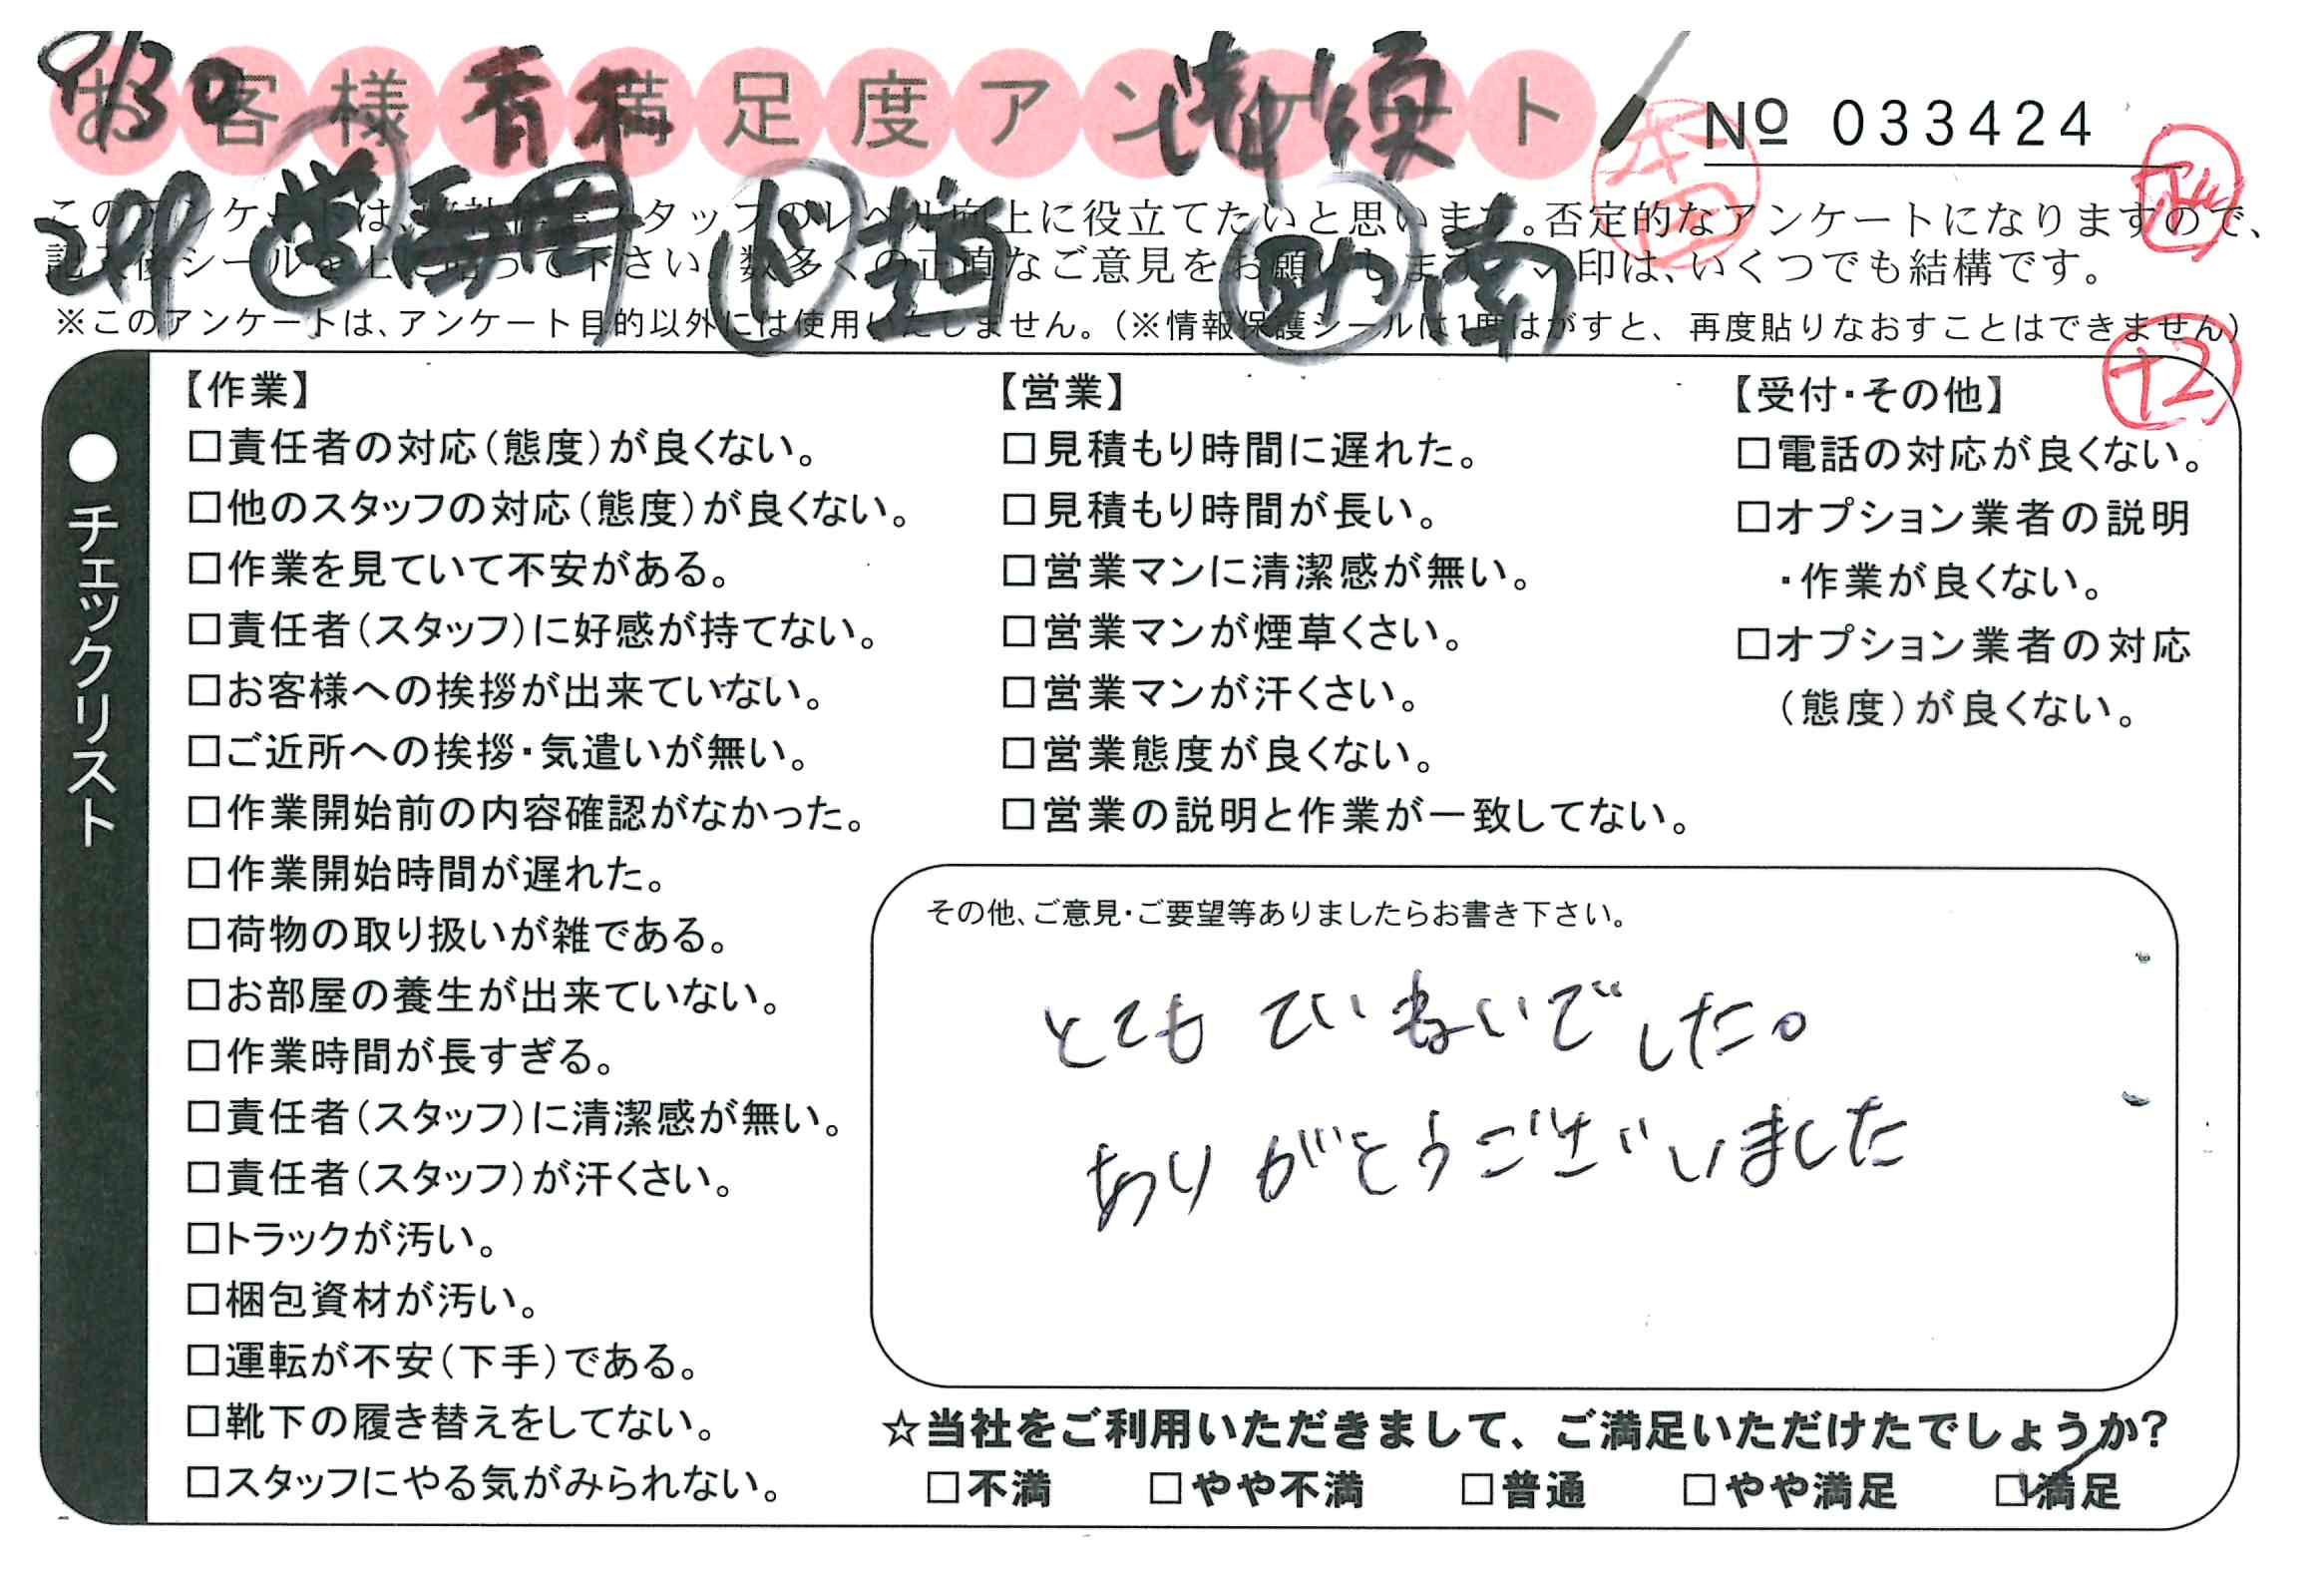 お客様不満足度アンケート
№ 033424
9/30
青木
このアンケートは、スタッフのレベル向上に役立てたいと思います。否定的なアンケートになりますので、
記入後シールを上に貼って下さい。数多くの正直なご意見をお願いします。✓印は、いくつでも結構です。
※このアンケートは、アンケート目的以外には使用いたしません。(※情報保護シールは1度はがすと、再度貼りなおすことはできません)
+2
●チェックリスト
【作業】
□責任者の対応(態度)が良くない。
□他のスタッフの対応(態度)が良くない。
□作業を見ていて不安がある。
□責任者(スタッフ)に好感が持てない。
□お客様への挨拶が出来ていない。
□ご近所への挨拶・気遣いが無い。
□作業開始前の内容確認がなかった。
□作業開始時間が遅れた。
□荷物の取り扱いが雑である。
□お部屋の養生が出来ていない。
□作業時間が長すぎる。
□責任者(スタッフ)に清潔感が無い。
□責任者(スタッフ)が汗くさい。
□トラックが汚い。
□梱包資材が汚い。
□運転が不安(下手)である。
□靴下の履き替えをしてない。
□スタッフにやる気がみられない。
【営業】
□見積もり時間に遅れた。
□見積もり時間が長い。
□営業マンに清潔感が無い。
□営業マンが煙草くさい。
□営業マンが汗くさい。
□営業態度が良くない。
□営業の説明と作業が一致してない。
【受付・その他】
□電話の対応が良くない。
□オプション業者の説明
・作業が良くない。
□オプション業者の対応
(態度)が良くない。
その他、ご意見・ご要望等ありましたらお書き下さい。
とても ていねいでした。
ありがとうございました
☆当社をご利用いただきまして、ご満足いただけたでしょうか?
□不満 □やや不満 □普通 □やや満足 ☑満足